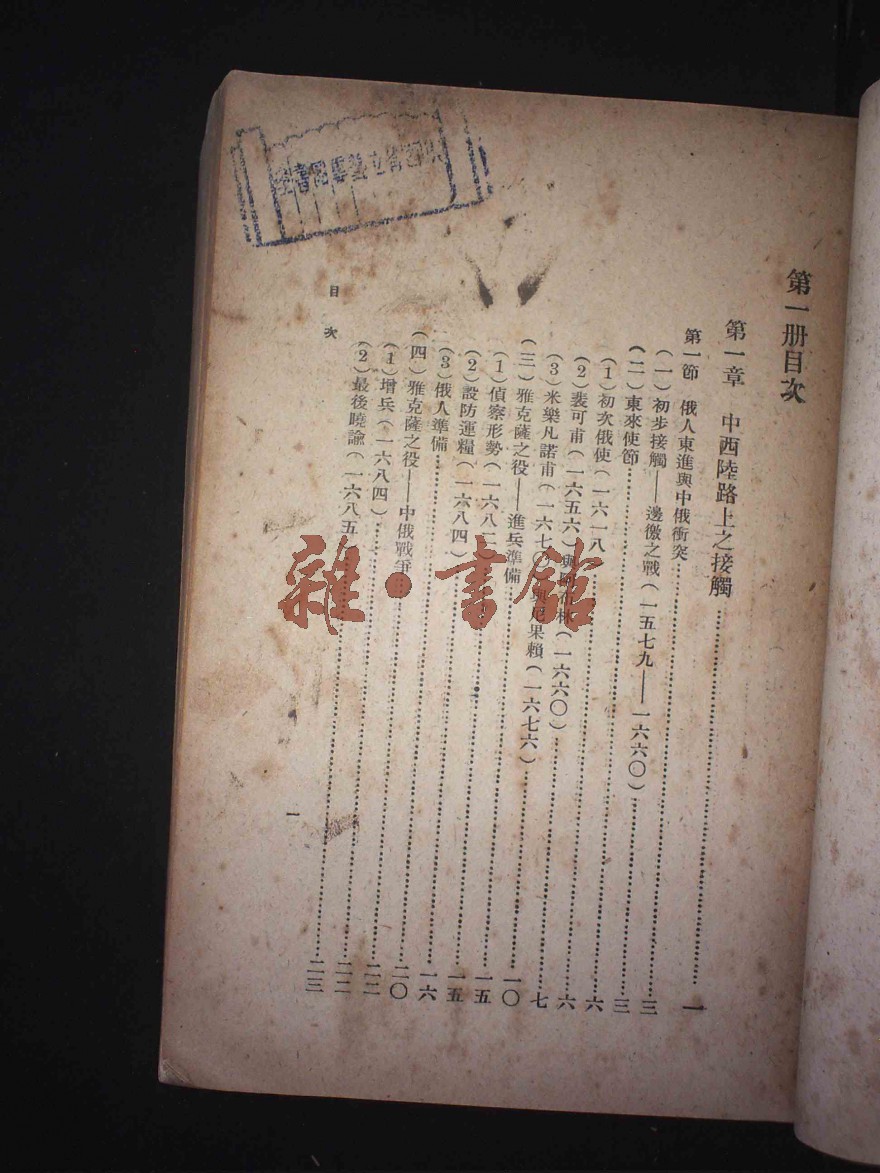 第一册目次
第一章 中西陸路上之接觸……一
第一節 俄人東進與中俄衝突……三
(一)初步接觸——邊徼之戰(一五七九——一六六〇)……三
(二)東來使節……六
(1)初次俄使(一六一八)……六
(2)裴可甫(一六五六)與阿布林(一六六〇)……七
(3)米樂凡諾甫(一六七〇)與尼果賴(一六七六)……一〇
(三)雅克薩之役——進兵準備……一五
(1)偵察形勢(一六八二)……一五
(2)設防運糧(一六八四)……一六
(3)俄人準備……二〇
(四)雅克薩之役——中俄戰爭……二二
(1)增兵(一六八四)……二二
(2)最後曉諭(一六八五)……二三
目次
一
雜·書館